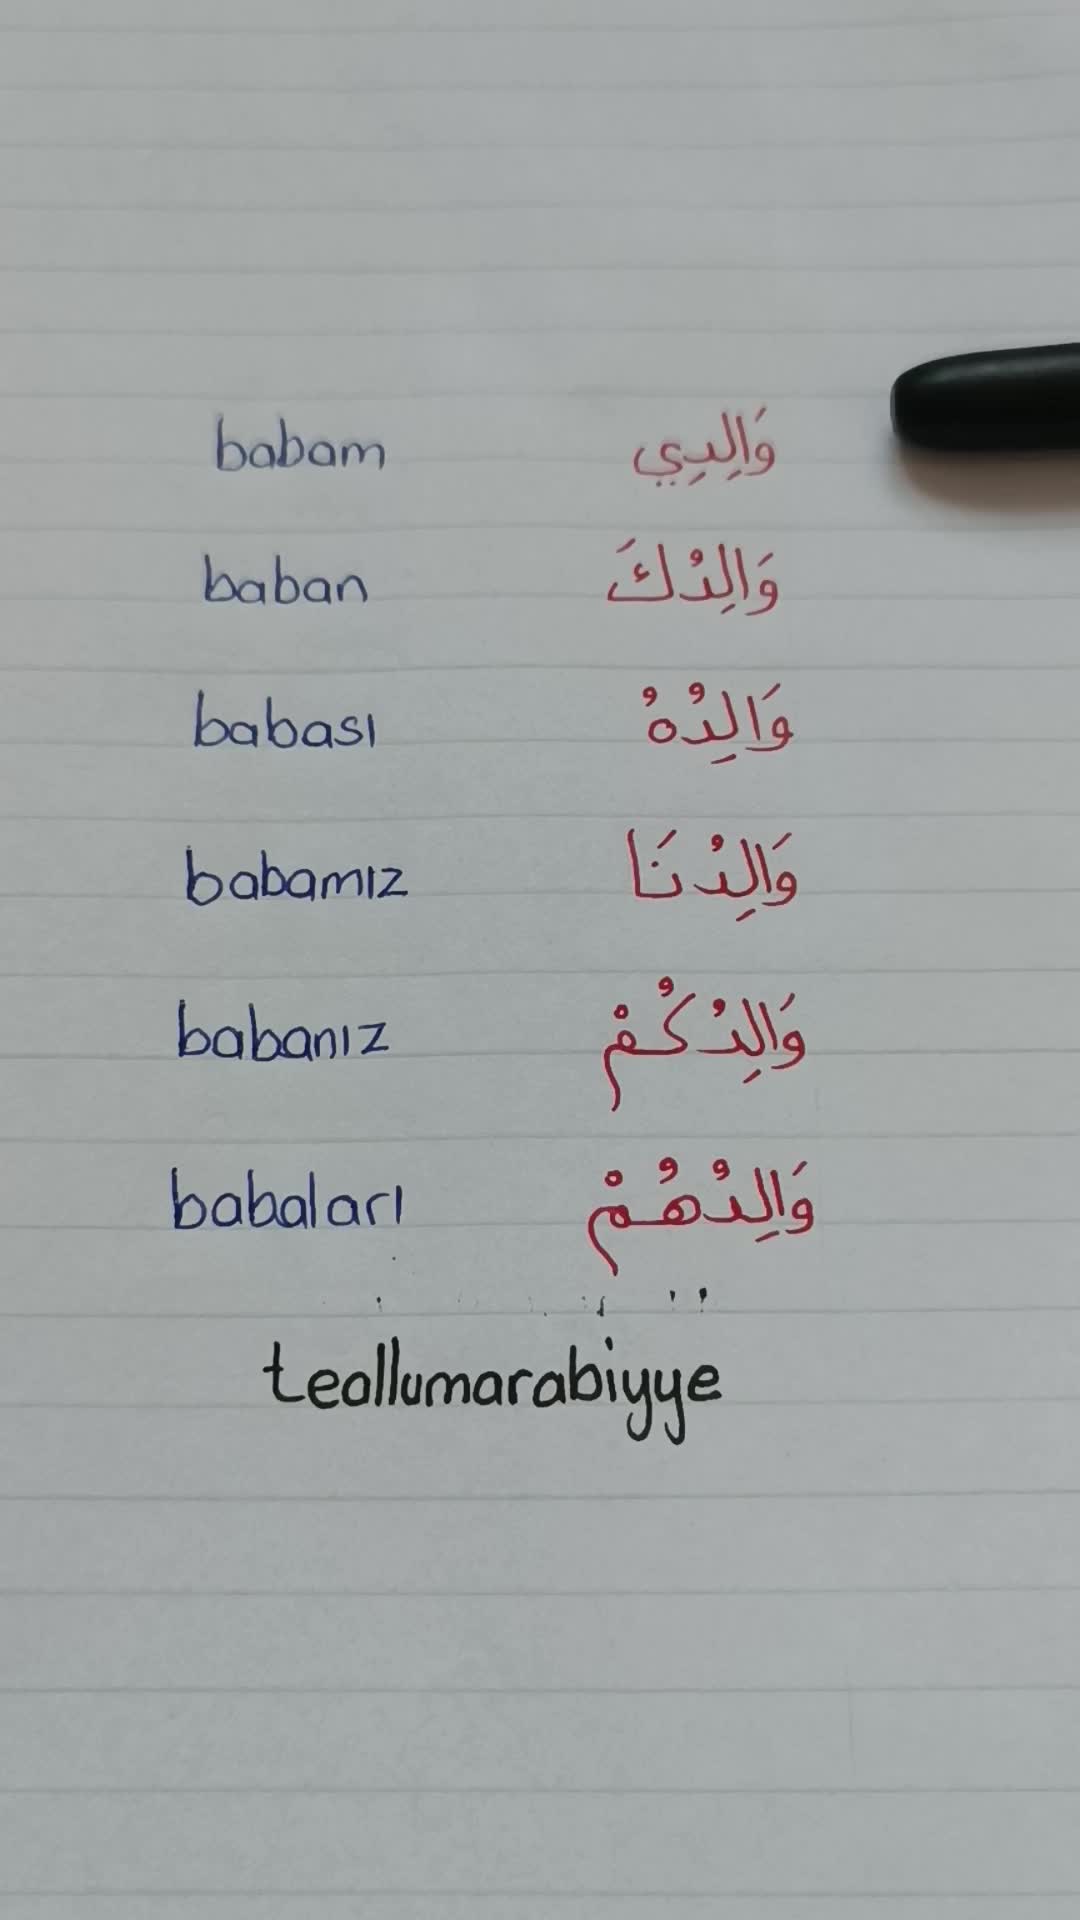 babam وَالِدِي
baban وَالِدُكَ
babası وَالِدُهُ
babamız وَالِدُنَا
babanız وَالِدُكُمْ
babaları وَالِدُهُمْ
teallumarabiyye